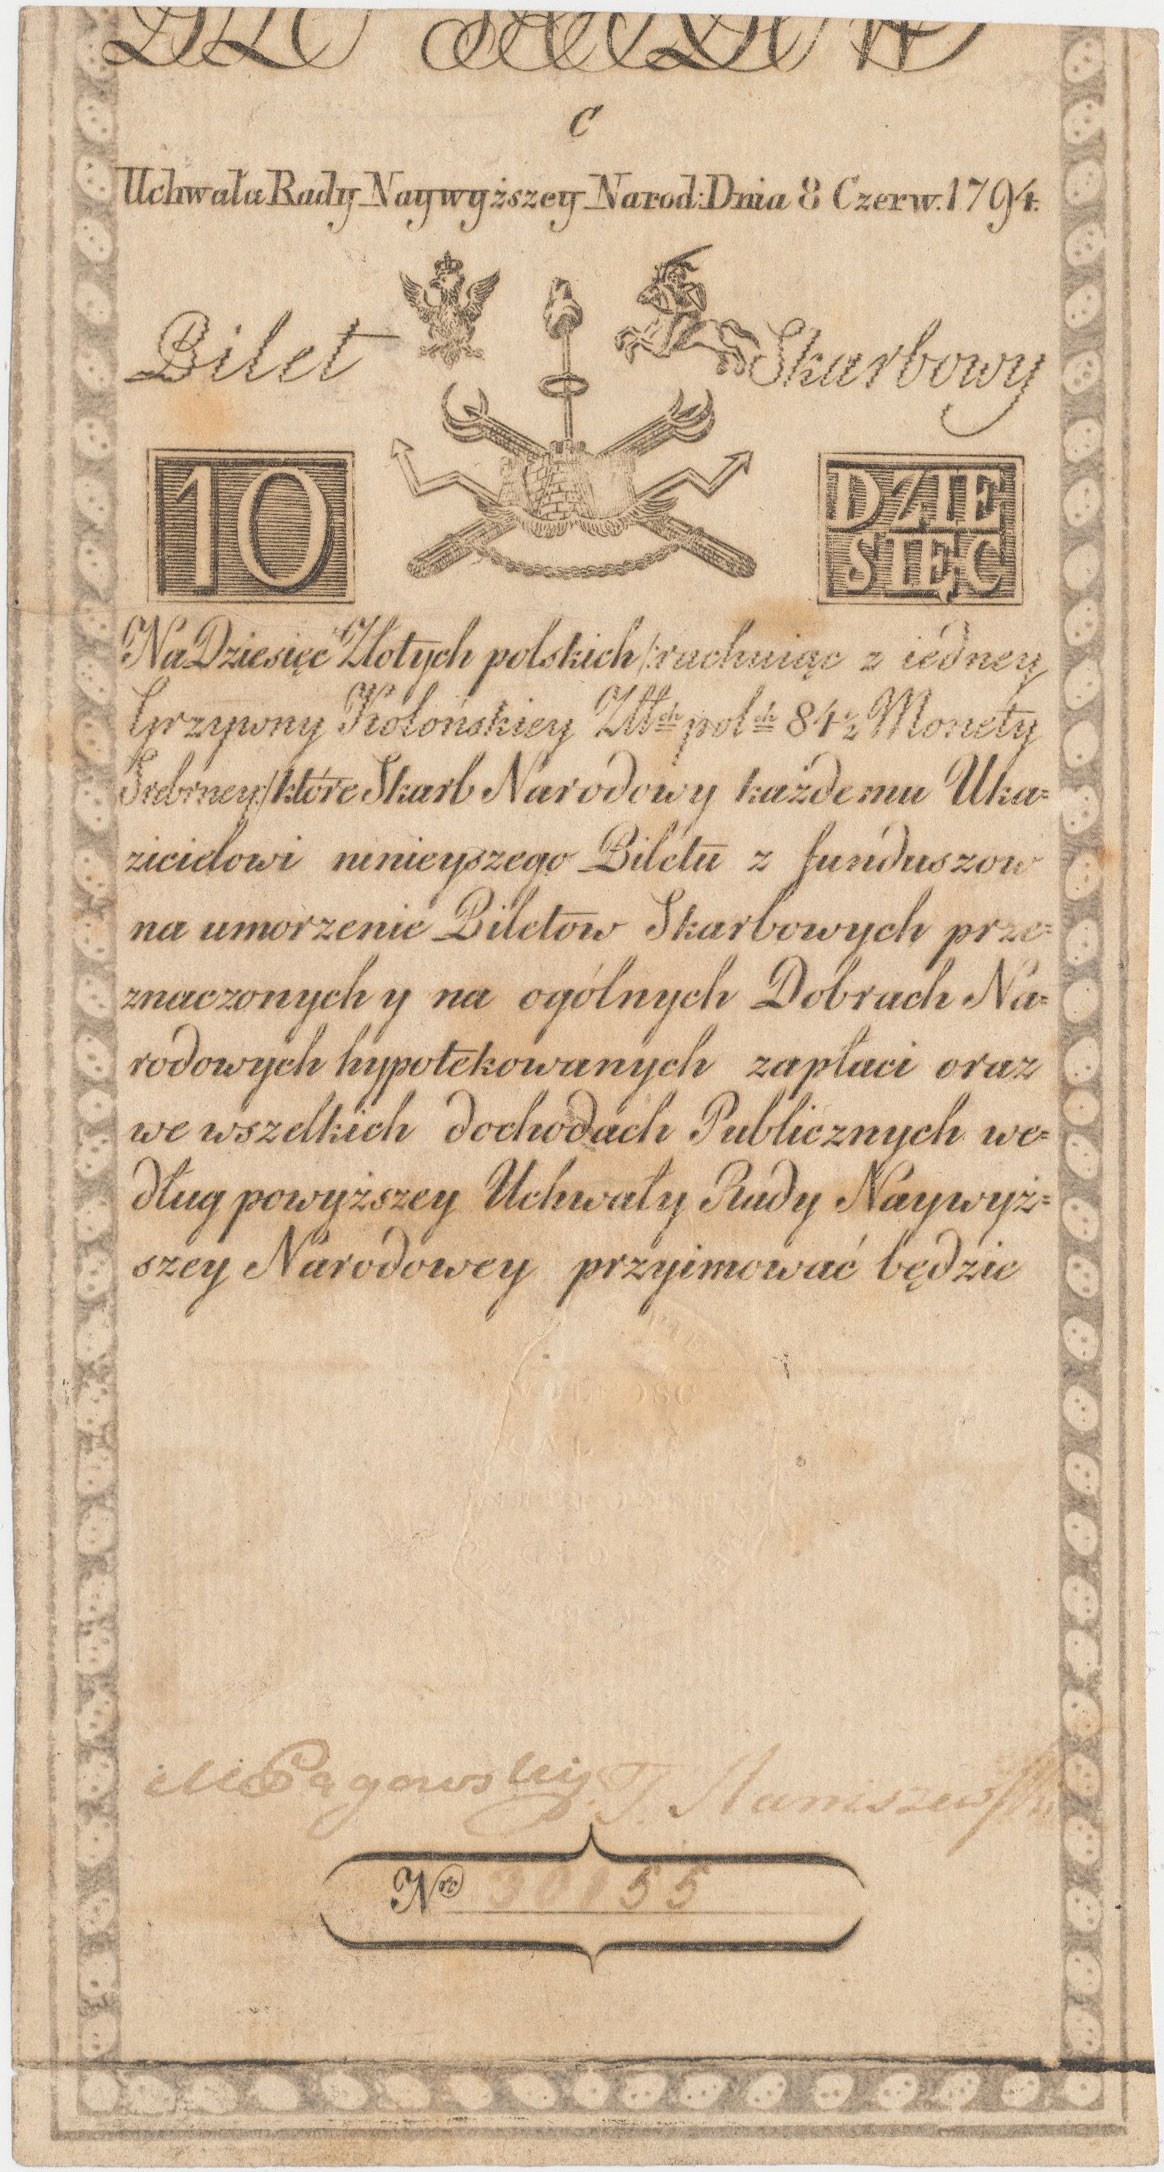 C
Uchwała Rady Naywyższey Narod: Dnia 8 Czerw. 1794.
Bilet Skarbowy
10
DZIE
SIĘĆ
Na Dziesięć Złotych polskich /:rachuiąc z iedney
Grzywny Kolońskiey Złł:ch pol:ch 84½ Monety
Srebrney:/ które Skarb Narodowy każdemu Uka=
zicielowi ninieyszego Biletu z funduszow
na umorzenie Biletow Skarbowych prze=
znaczonych y na ogólnych Dobrach Na=
rodowych hypotekowanych zapłaci oraz
we wszelkich dochodach Publicznych we=
dług powyższey Uchwały Rady Naywyż=
szey Narodowey przyimować będzie
WOLNOSC
M Pągowski. T. Staniszewski
Nro 30155